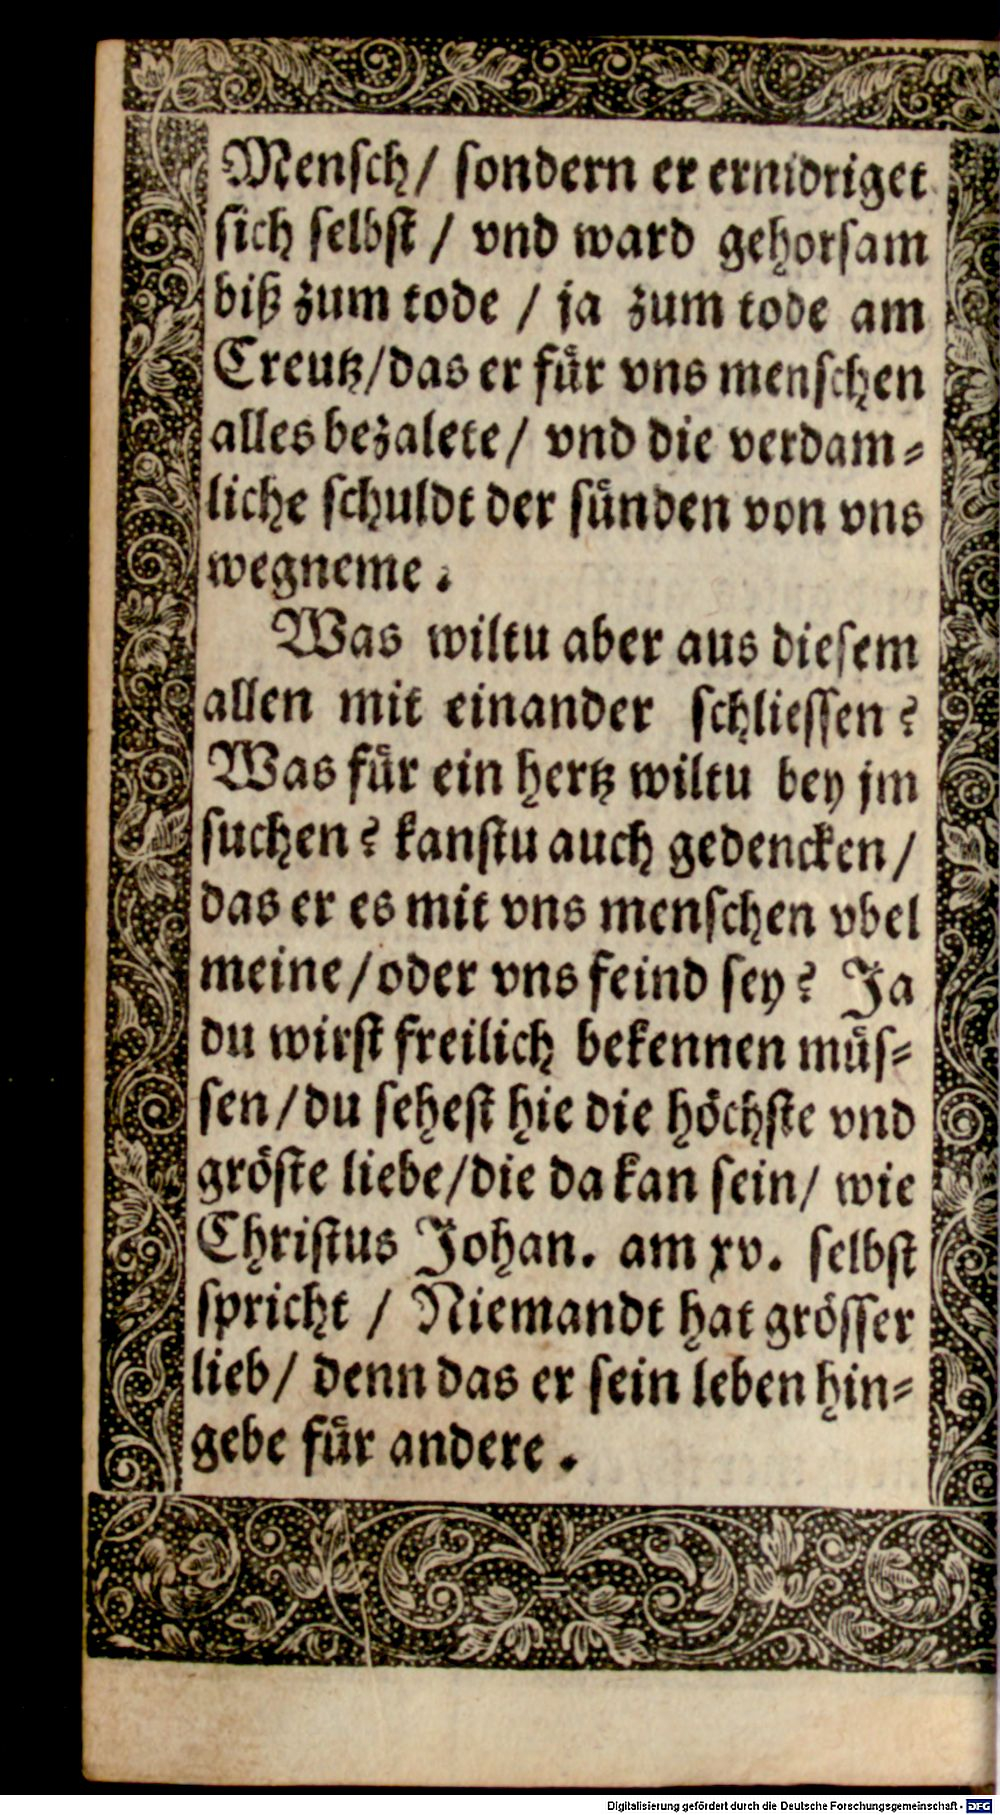 Menſch/ ſondern er ernidriget
ſich ſelbſt / vnd ward gehorſam
biß zum tode / ja zum tode am
Creutz/das er fuͤr vns menſchen
alles bezalete/ vnd die verdam⸗
liche ſchuldt der ſuͤnden von vns
wegneme.
Was wiltu aber aus dieſem
allen mit einander ſchlieſſen?
Was fuͤr ein hertz wiltu bey jm
ſuchen? kanſtu auch gedencken/
das er es mit vns menſchen vbel
meine/oder vns feind ſey? Ja
du wirſt freilich bekennen muͤſ⸗
ſen/du ſeheſt hie die hoͤchſte vnd
groͤſte liebe/die da kan ſein/ wie
Chriſtus Johan. am xv. ſelbſt
ſpricht / Niemandt hat groͤſſer
lieb/ denn das er ſein leben hin⸗
gebe fuͤr andere.
Digitalisierung gefördert durch die Deutsche Forschungsgemeinschaft - DFG